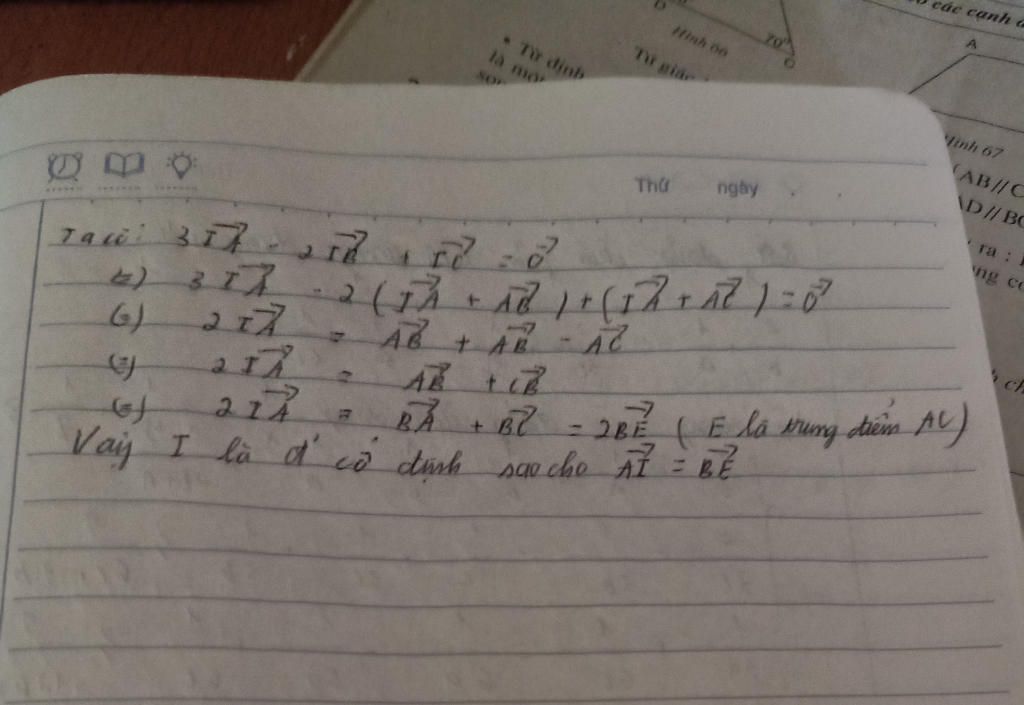 D
Hình 66
70°
C
* Từ định
là một
Tứ giác
có các cạnh
A
Hình 67
(AB//C
AD//BC
ra :
Thứ ngày
Ta có: 3IA⃗ - 2IB⃗ + IC⃗ = 0⃗
(=) 3IA⃗ - 2(IA⃗ + AB⃗) + (IA⃗ + AC⃗) = 0⃗
(=) 2IA⃗ = AB⃗ + AB⃗ - AC⃗
(=) 2IA⃗ = AB⃗ + CB⃗
(=) 2IA⃗ = BA⃗ + BC⃗ = 2BE⃗ (E là trung điểm AC)
Vậy I là đ' cố định sao cho AI⃗ = BE⃗